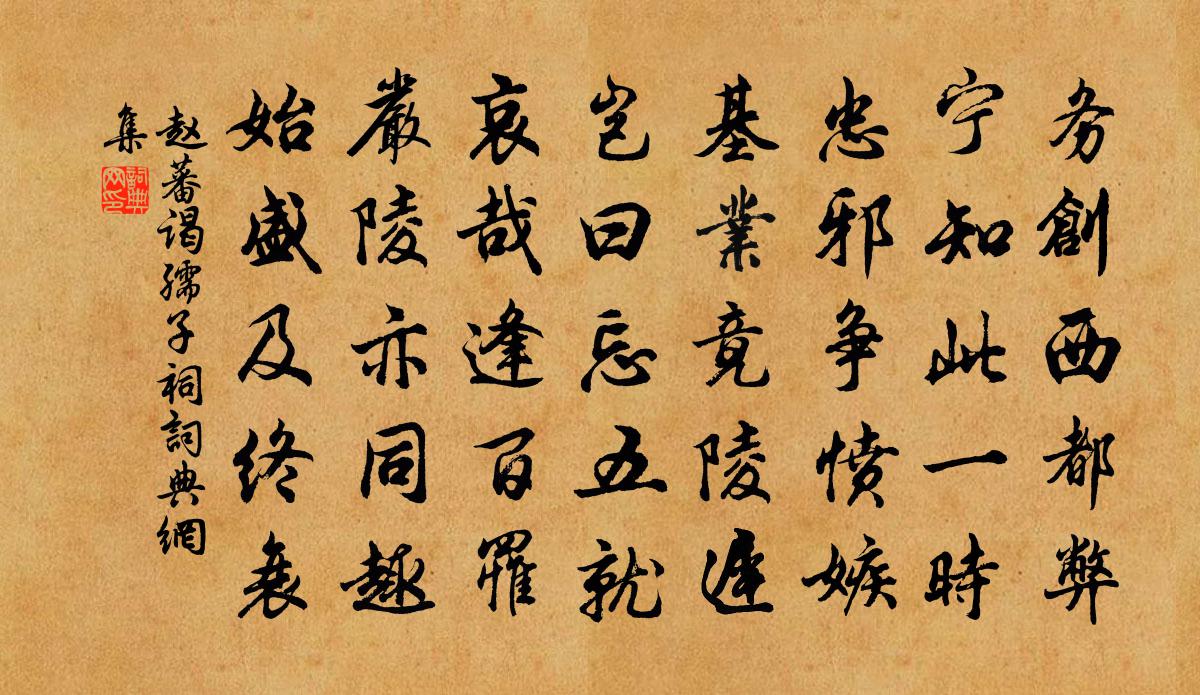 务創西都弊
宁知此一時
忠邪争愤嫉
基業竟陵遲
岂曰忘五就
哀哉逢百罹
嚴陵亦同趣
始盛及终衰
赵蕃谒孺子祠詞典網
集
詞典網印